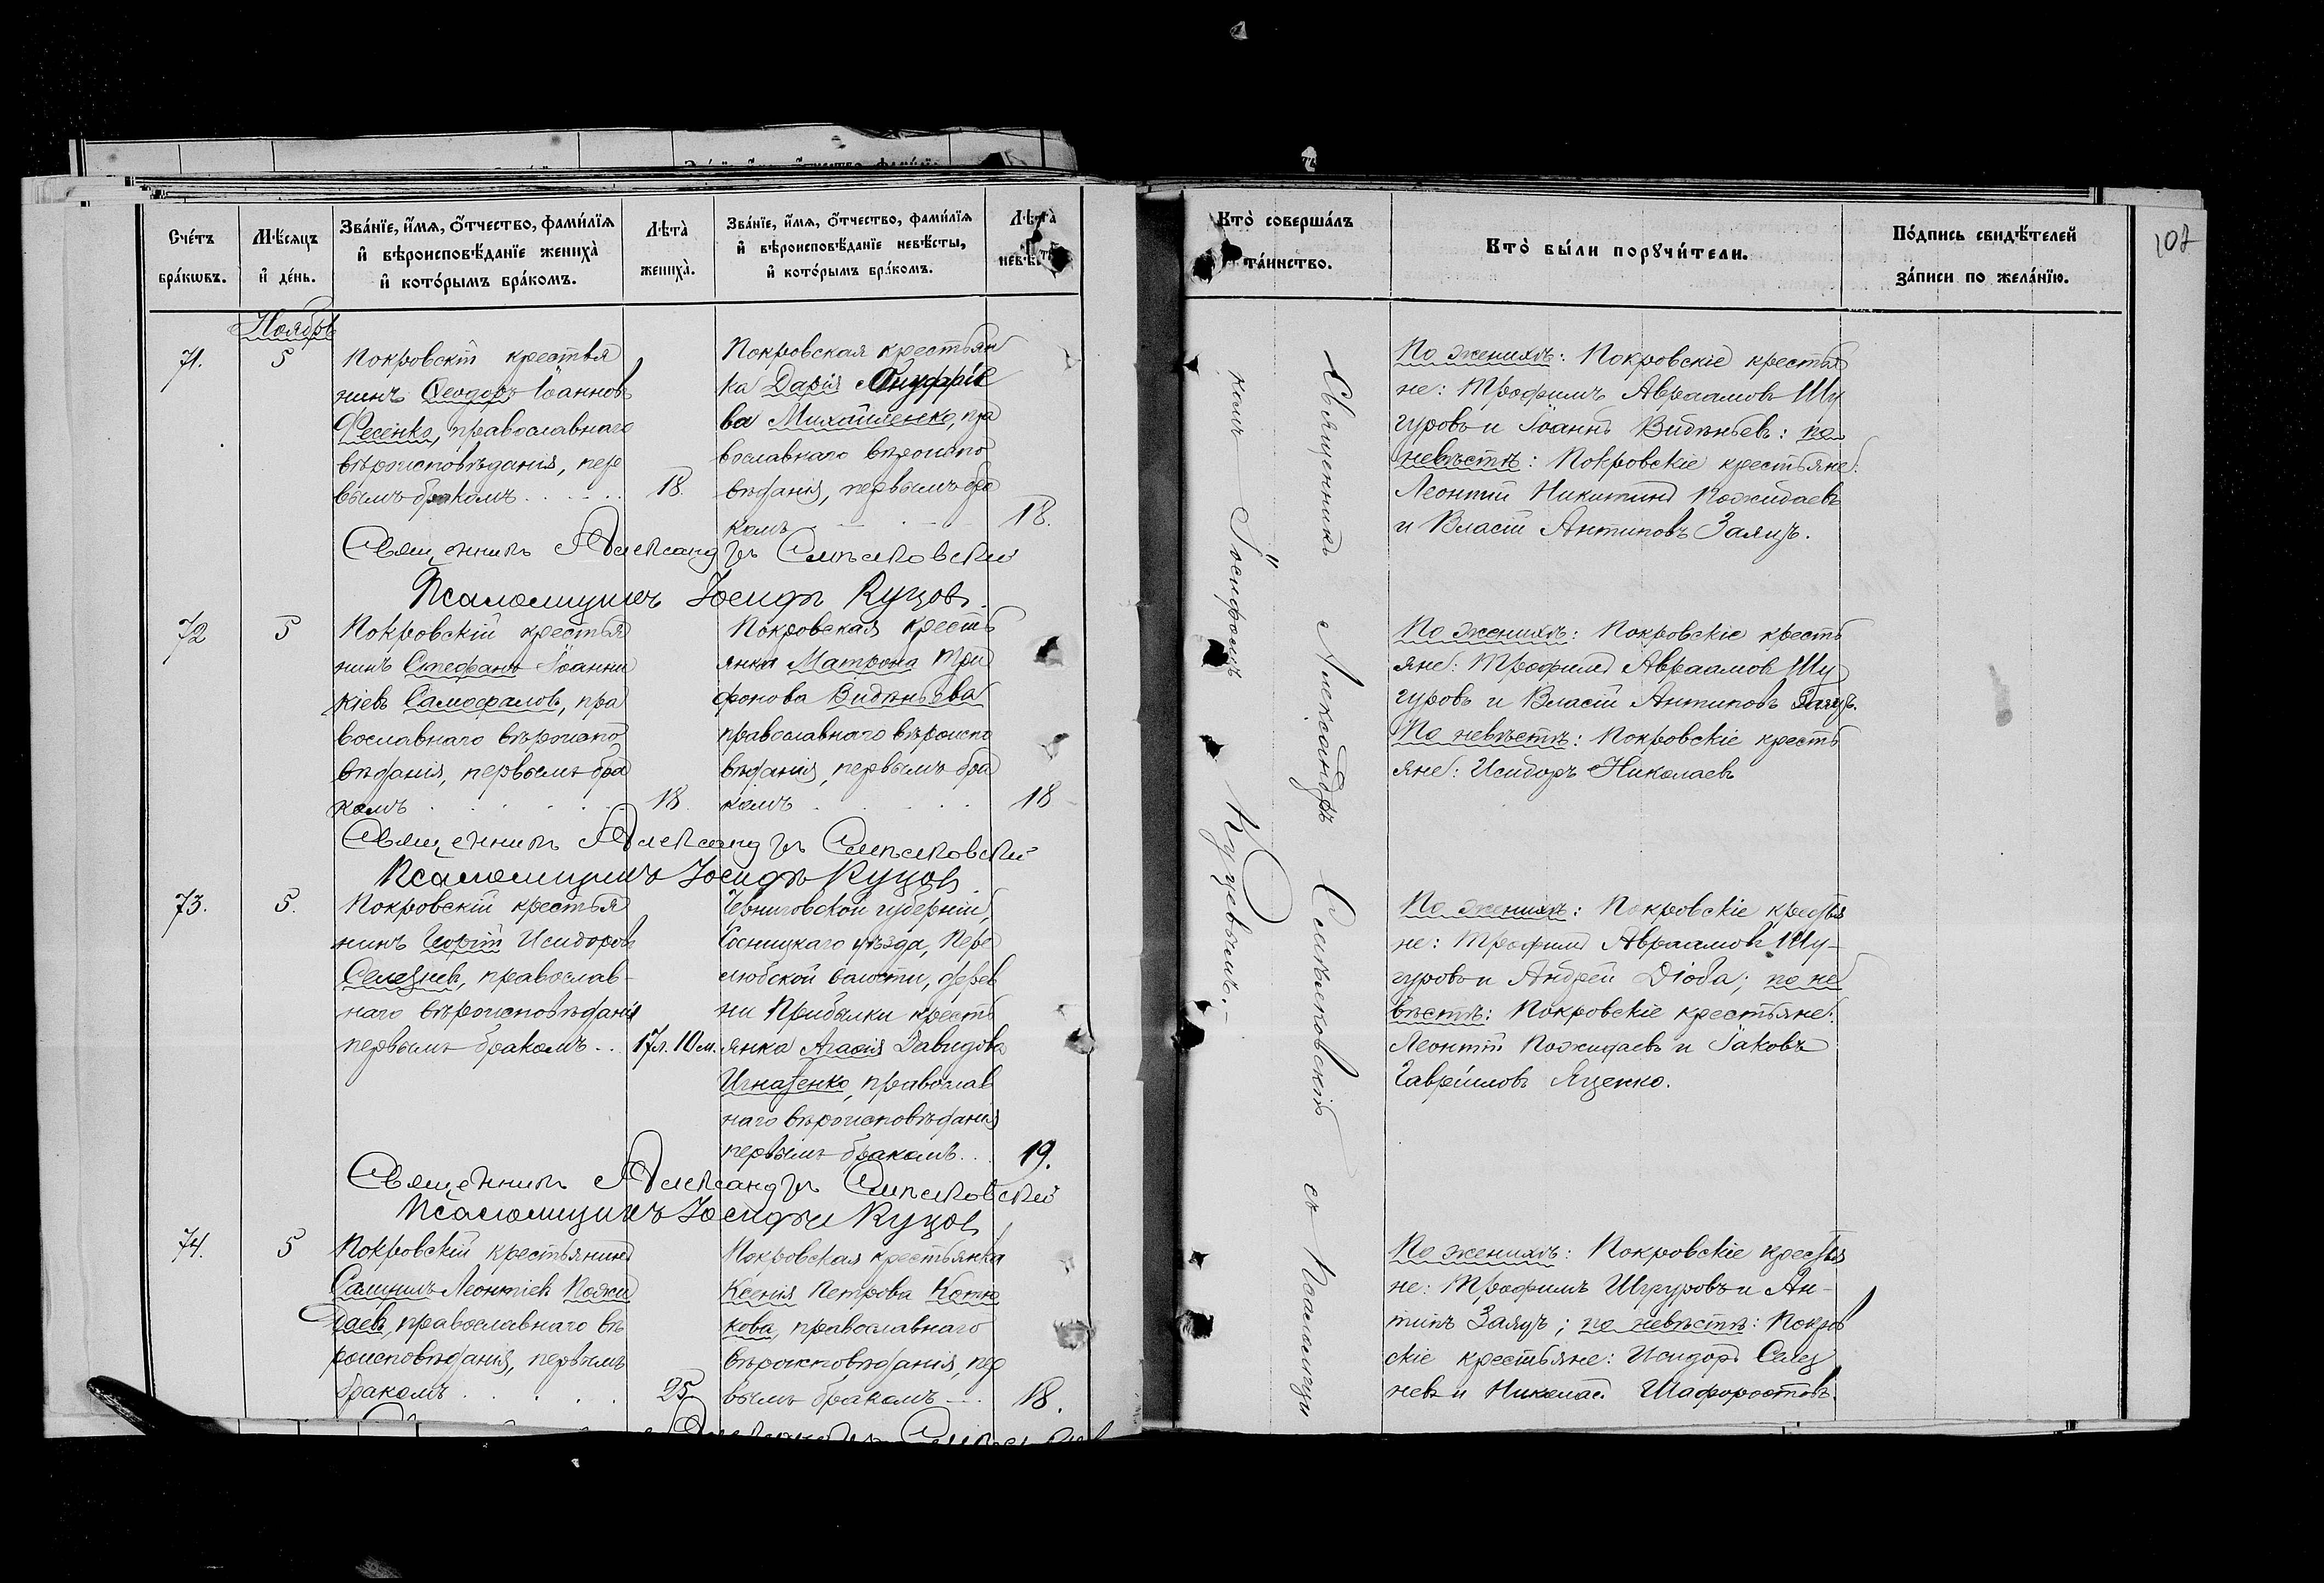 Счетъ браковъ.
Мѣсяцъ и день.
Званіе, имя, отчество, фамилія
и вѣроисповѣданіе жениха
и которымъ бракомъ.
Лѣта
жениха.
Званіе, имя, отчество, фамилія
и вѣроисповѣданіе невѣсты,
и которымъ бракомъ.
Лѣта
невѣсты
Ноябрь
71.
5
Покровскій крестья
нинъ Ѳеодоръ Іоанновъ
Фесенко, православнаго
вѣроисповѣданія, пер
вымъ бракомъ . . . . .
18.
Покровская крестьян
ка Дарія Онуфріе
ва Михайленко, пра
вославнаго вѣроиспо
вѣданія, первымъ бра
комъ
18.
Священникъ Александръ Смѣлковскій
Псаломщикъ Іосифъ Куцов
72
5
Покровскій крестья
нинъ Стефанъ Іоанни
кіевъ Самофаловъ, пра
вославнаго вѣроиспо
вѣданія, первымъ бра
комъ . . . . .
18.
Покровская кресть
янка Матрона Три
фонова Видѣньева
православнаго вѣроиспо
вѣданія, первымъ бра
комъ . . . . .
18
Священникъ Александръ Смѣлковскій
Псаломщикъ Іосифъ Куцов
73.
5.
Покровскій крестья
нинъ Георгій Исидоровъ
Селезнев, православ-
наго вѣроисповѣданія
первымъ бракомъ . .
17л. 10м.
Черниговской губерніи,
Сосницкаго уѣзда, Пере
любской волости, дерев
ни Прибылки кресть
янка Агафія Давидова
Игнатенко, православ
наго вѣроисповѣданія
первымъ бракомъ. .
19.
Священникъ Александръ Смѣлковскій
Псаломщикъ Іосифъ Куцов
74.
5
Покровскій крестьянинъ
Самуилъ Леонтіев Пожи
даевъ, православнаго вѣ
роисповѣданія, первымъ
бракомъ . . . .
25
Покровская крестьянка
Ксенія Петрова Котю
кова, православнаго
вѣроисповѣданія, пер
вымъ бракомъ . . .
18.
Кто совершалъ
таинство.
Кто были поручители.
Подпись свидѣтелей
записи по желанію.
107
Священникъ Александръ Смѣлковскій съ Псаломщи
комъ Іосифомъ Куцевымъ.
По женихѣ: Покровскіе крестья
не: Трофимъ Авраамовъ Шу
гуровъ и Іоаннъ Видѣньевъ: по
невѣстѣ: Покровскіе крестьяне:
Леонтій Никитинъ Пожидаевъ
и Власій Антиповъ Заяцъ.
По женихѣ: Покровскіе кресть
яне: Трофимъ Авраамов Шу
гуровъ и Власій Антиповъ Заяцъ.
По невѣстѣ: Покровскіе кресть
яне: Исидоръ Николаевъ
По женихѣ: Покровскіе крестья
не: Трофимъ Авраамовъ Шу-
гуровъ и Андрей Діоба; по не
вѣстѣ: Покровскіе крестьяне:
Леонтій Пожидаевъ и Іаковъ
Гавріиловъ Яценко.
По женихѣ: Покровскіе крестья
не: Трофимъ Шугуровъ и Ан-
типъ Заяцъ; по невѣстѣ: Покров
скіе крестьяне: Исидоръ Селез
невъ и Николай Шафоростовъ.